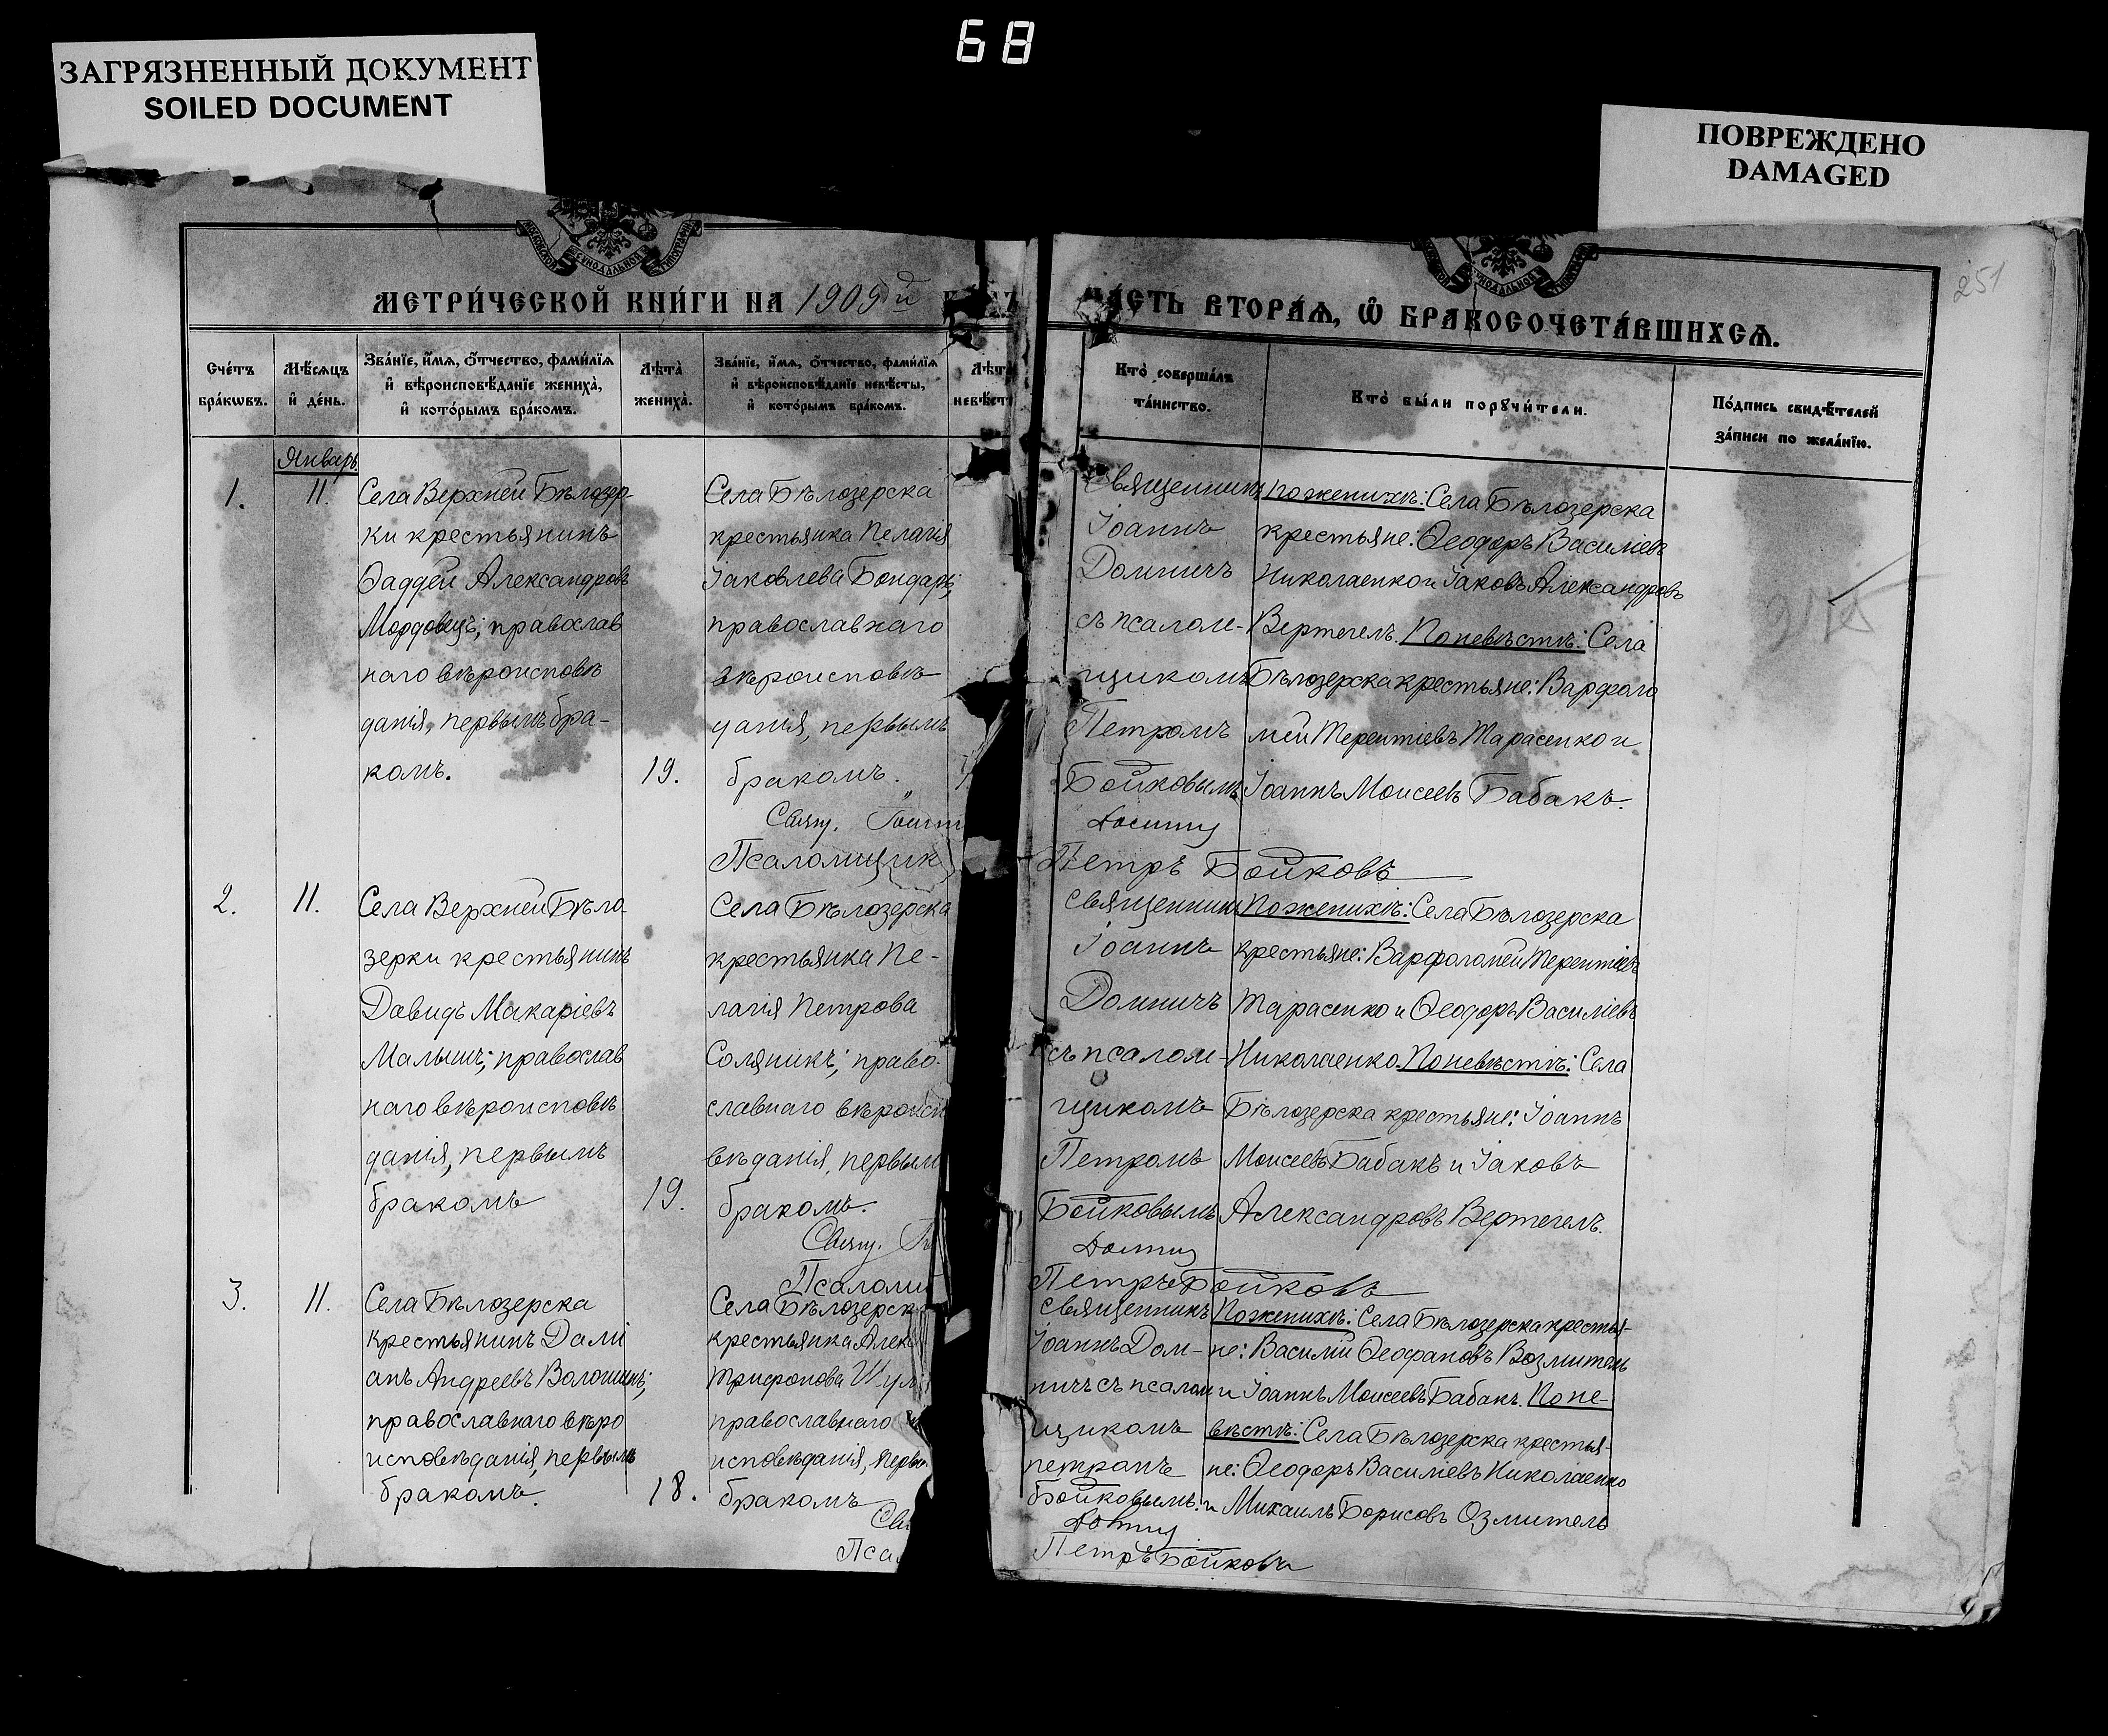 68
ЗАГРЯЗНЕННЫЙ ДОКУМЕНТ
SOILED DOCUMENT
ПОВРЕЖДЕНО
DAMAGED
251
МОСКОВСКОЙ СѴНОДАЛЬНОЙ ТИПОГРАФІИ
МЕТРИ́ЧЕСКОЙ КНИ́ГИ НА 1905й
ЧА́СТЬ ВТОРА́Ѧ, Ѽ БРАКОСОЧЕТА́ВШИХСѦ.
Сче́тъ бра́кѡвъ.
Мѣ́сѧцъ и҆ де́нь.
Зва́нїе, и҆́мѧ, ѻ҆́тчество, фами́лїѧ
и҆ вѣроисповѣ́данїе жениха̀,
и҆ кото́рымъ бра́комъ.
Лѣ́та жениха̀.
Зва́нїе, и҆́мѧ, ѻ҆́тчество, фами́лїѧ
и҆ вѣроисповѣ́данїе невѣ́сты,
и҆ кото́рымъ бра́комъ.
Лѣ́та
невѣ́ст
Кто̀ соверша́лъ
та́инство.
Кто̀ бы́ли порꙋчи́тели.
По́дпись свидѣ́телей
за́писи по жела́нїю.
Январь
1.
11.
Села Верхней Бѣлозер-
ки крестьянинъ
Ѳаддей Александровъ
Мордовецъ; православ
наго вѣроисповѣ
данія, первымъ бра-
комъ.
19.
Села Бѣлозерска
крестьянка Пелагія
Іаковлева Бондарь;
православнаго
вѣроисповѣ
данія, первымъ
бракомъ.
Свящ.
Псаломщик
Священникъ
Іоаннъ
Домничъ
съ псалом-
щикомъ
Петромъ
Бойковымъ
Домнич
Петръ Бойковъ
По женихѣ: Села Бѣлозерска
крестьяне: Ѳеодоръ Василіевъ
Николаенко и Іаковъ Александровъ
Вертегелъ. По невѣстѣ: Села
Бѣлозерска крестьяне: Варфоло
мей Терентіевъ Тарасенко и
Іоаннъ Моисеевъ Бабакъ.
2.
11.
Села Верхней Бѣло-
зерки крестьянинъ
Давидъ Макаріевъ
Малышъ; православ
наго вѣроисповѣ
данія, первымъ
бракомъ
19.
Села Бѣлозерска
крестьянка Пе-
лагія Петрова
Соляникъ; право-
славнаго вѣроисп
вѣданія, первым
бракомъ.
Свящ.
Псаломщ
Священникъ
Іоаннъ
Домничъ
съ псалом-
щикомъ
Петромъ
Бойковымъ
Домнич
Петръ Бойковъ
По женихѣ: Села Бѣлозерска
крестьяне: Варфоломей Терентіевъ
Тарасенко и Ѳеодоръ Василіевъ
Николаенко. По невѣстѣ: Села
Бѣлозерска крестьяне: Іоаннъ
Моисеевъ Бабакъ и Іаковъ
Александровъ Вертегелъ.
3.
11.
Села Бѣлозерска
крестьянинъ Дамі
анъ Андреевъ Волошинъ;
православнаго вѣро
исповѣданія, первымъ
бракомъ.
18.
Села Бѣлозерск
крестьянка Алек
Трифонова Шул
православнаго
исповѣданія, первы
бракомъ
Свя
Псал
Священникъ
Іоаннъ Дом-
ничъ съ псалом
щикомъ
Петромъ
Бойковымъ.
Домнич
Петръ Бойковъ
По женихѣ: Села Бѣлозерска крестья-
не: Василій Ѳеофановъ Возмитель
и Іоаннъ Моисеевъ Бабакъ. По не-
вѣстѣ: Села Бѣлозерска крестья-
не: Ѳеодоръ Василіевъ Николаенко
и Михаилъ Борисовъ Озмитель